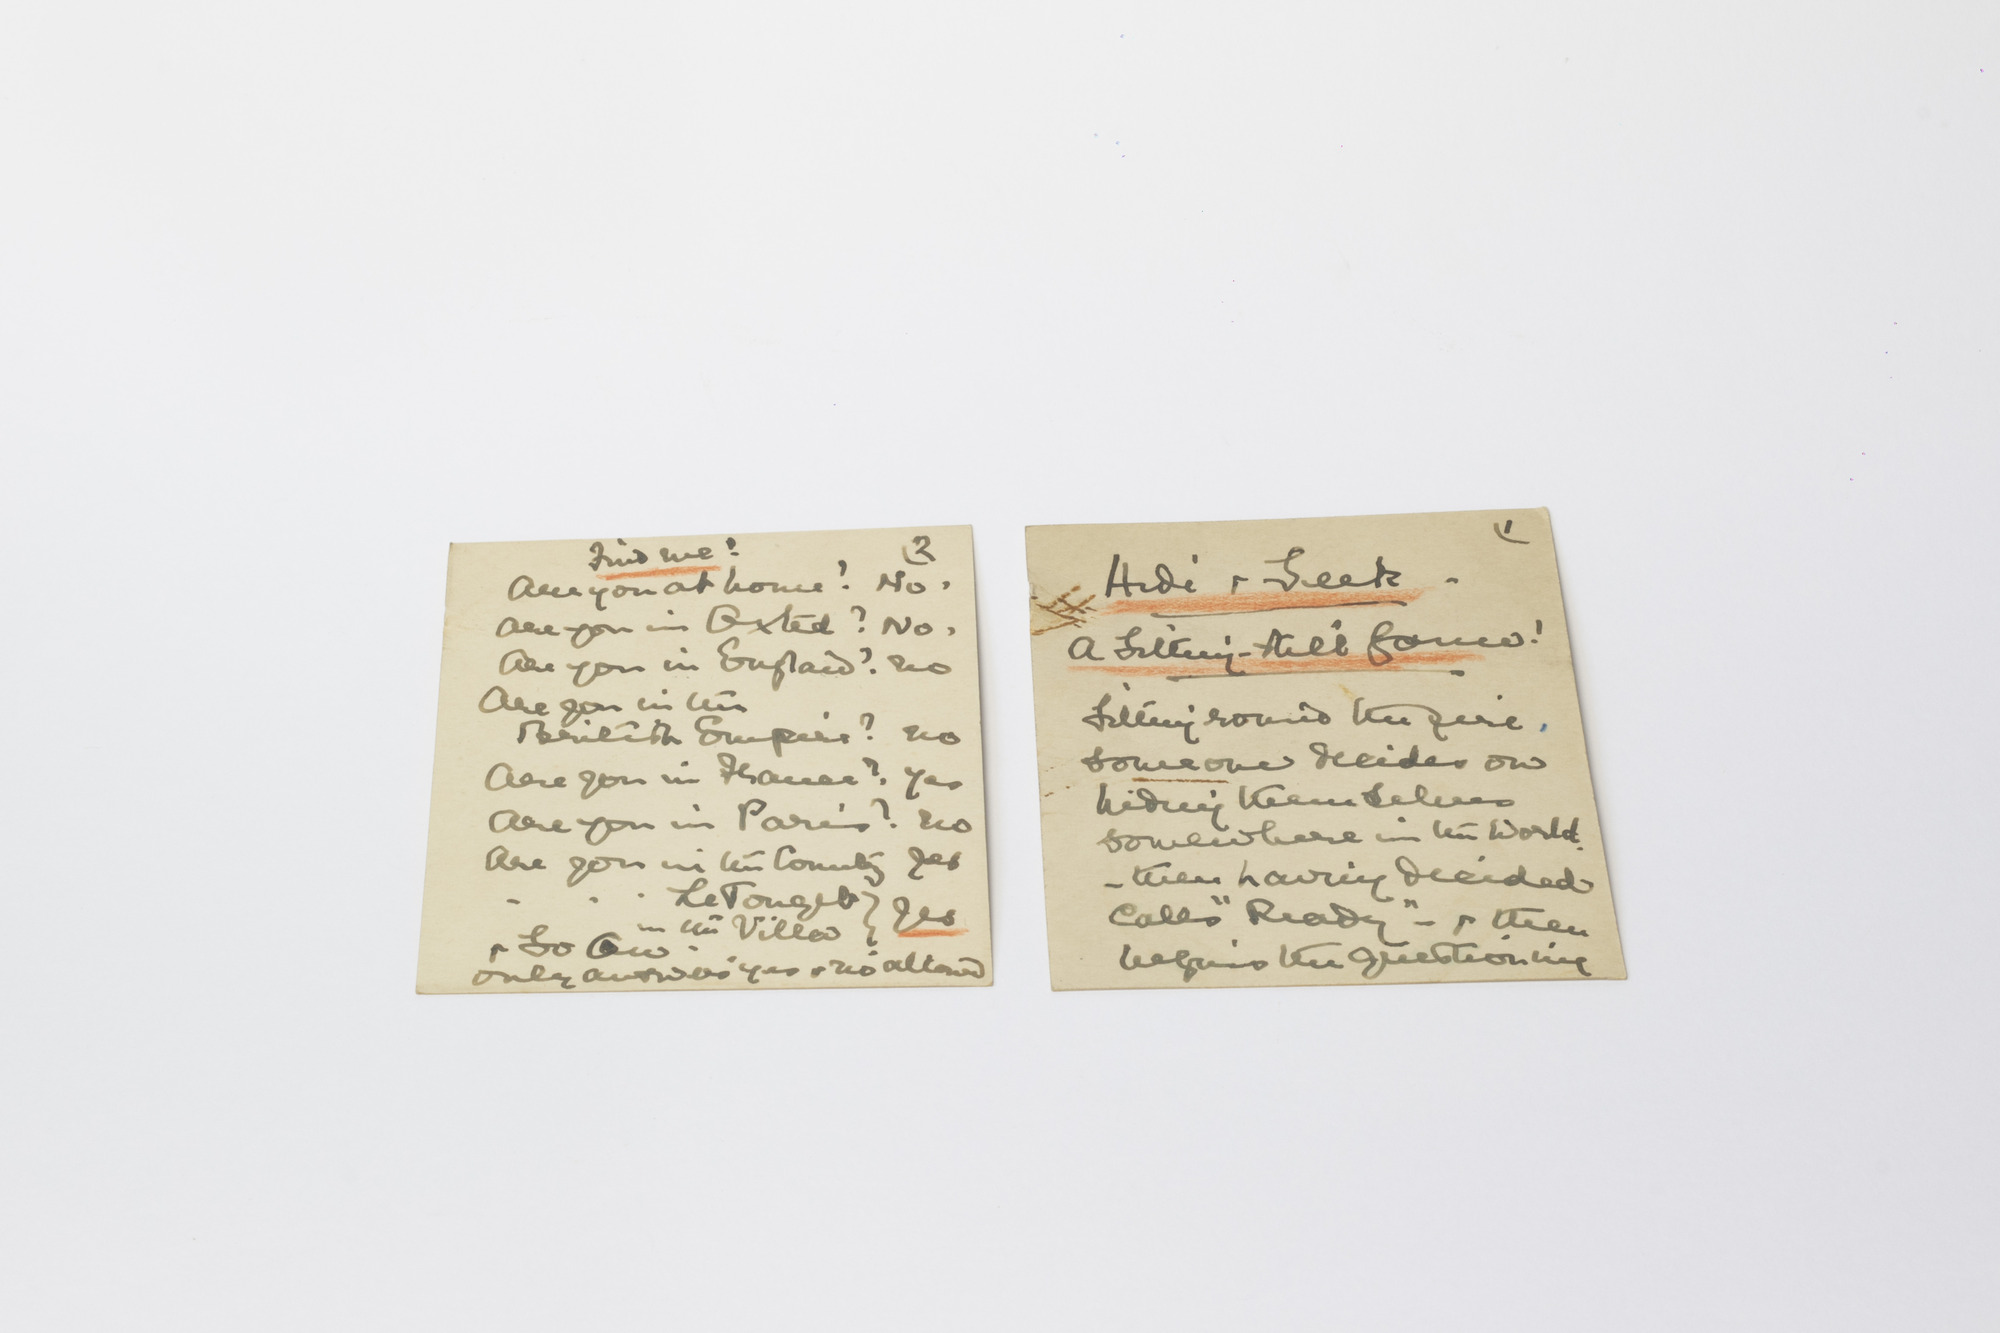 1
Hide & Seek -
A Sitting-Still Game!
Sitting round the fire,
someone decides on
hiding themselves
somewhere in the World.
- then having decided
calls "Ready" - & then
begins the questioning
2
Find me!
Are you at home? No.
Are you in Oxted? No.
Are you in England? no
Are you in the
British Empire? no
Are you in France? yes
Are you in Paris? no
Are you in the Country yes
" " " Le Touquet } yes
in the Villa
& So On.
only answers yes & no allowed